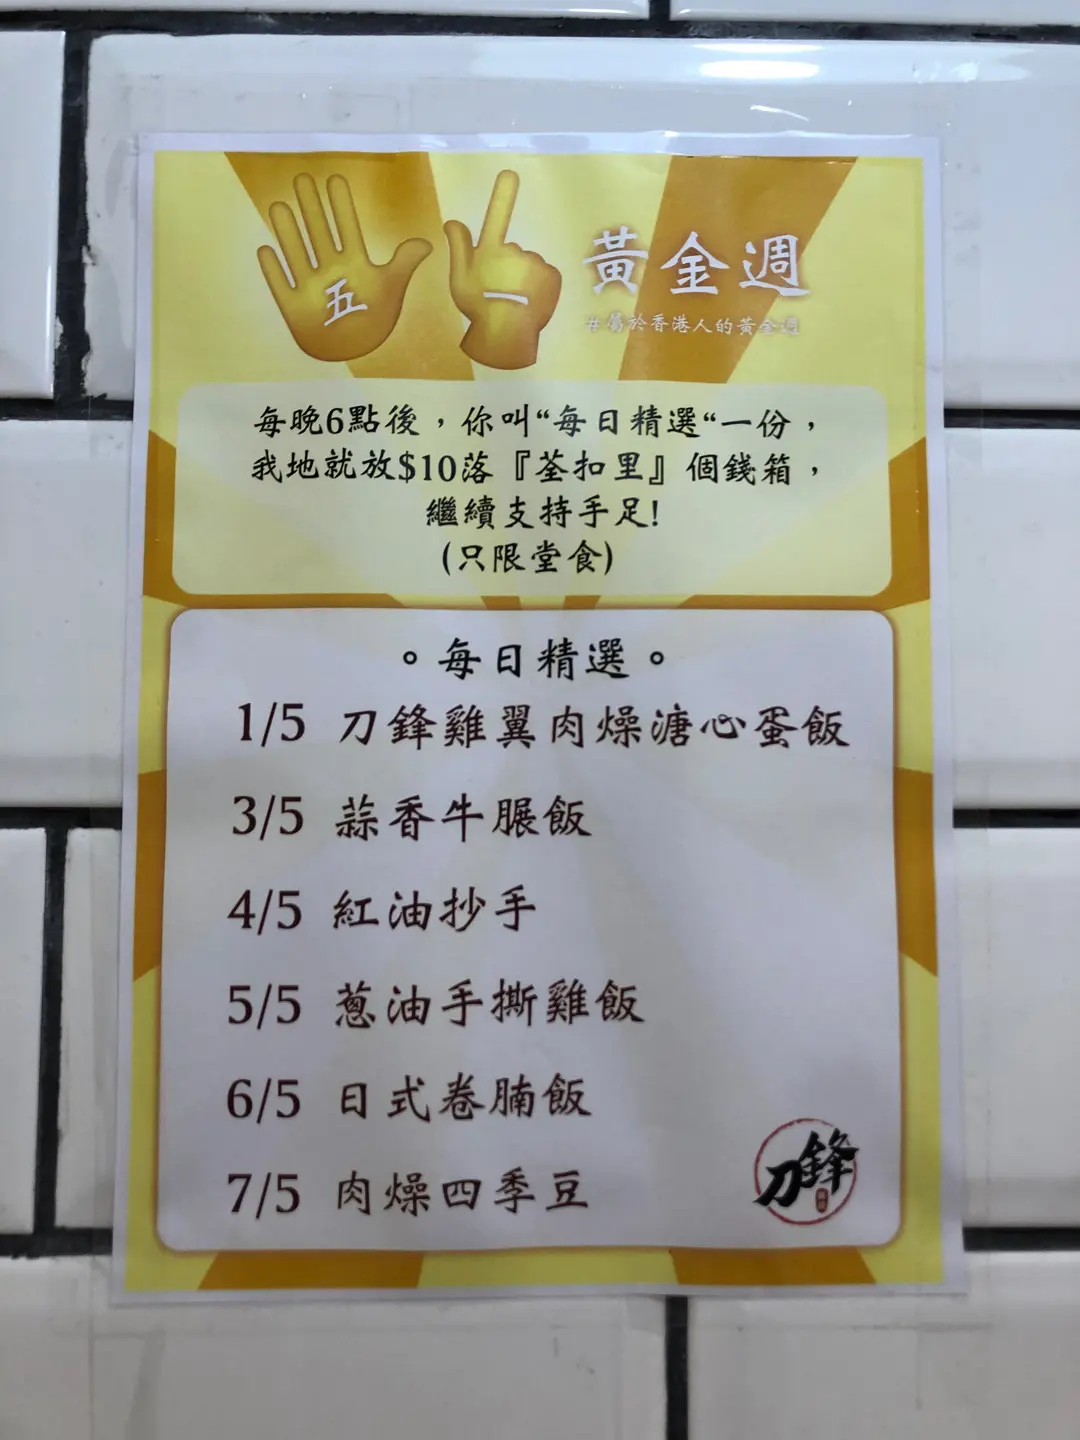 五 一 黃金週
#屬於香港人的黃金週
每晚6點後，你叫“每日精選“一份，
我地就放$10落『荃扣里』個錢箱，
繼續支持手足!
(只限堂食)
。每日精選。
1/5 刀鋒雞翼肉燥溏心蛋飯
3/5 蒜香牛𦟌飯
4/5 紅油抄手
5/5 蔥油手撕雞飯
6/5 日式卷腩飯
7/5 肉燥四季豆
刀鋒